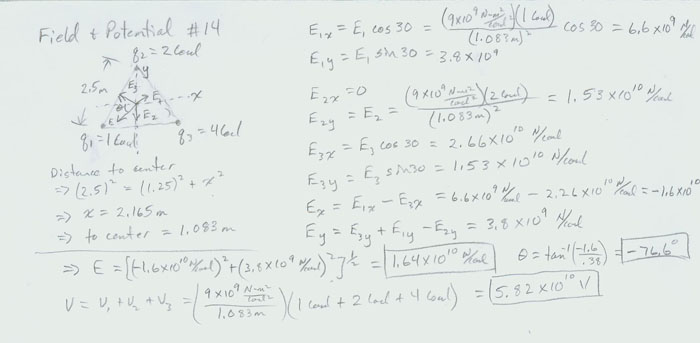 Field & Potential #14
q2 = 2 Coul
y
2.5m
E3
E1
x
E2
q1 = 1 Coul
q3 = 4 Coul
Distance to center
=> (2.5)² = (1.25)² + x²
=> x = 2.165 m
=> to center = 1.083 m
E1x = E1 cos 30 = (9x10⁹ N-m²/Coul²)(1 Coul)/(1.083 m)² cos 30 = 6.6 x 10⁹ N/Coul
E1y = E1 sin 30 = 3.8 x 10⁹
E2x = 0
E2y = E2 = (9x10⁹ N-m²/Coul²)(2 Coul)/(1.083 m)² = 1.53 x 10¹⁰ N/Coul
E3x = E3 cos 30 = 2.66 x 10¹⁰ N/Coul
E3y = E3 sin 30 = 1.53 x 10¹⁰ N/Coul
Ex = E1x - E3x = 6.6 x 10⁹ N/Coul - 2.26 x 10¹⁰ N/Coul = -1.6 x 10¹⁰
Ey = E3y + E1y - E2y = 3.8 x 10⁹ N/Coul
=> E = [(-1.6x10¹⁰ N/Coul)² + (3.8x10⁹ N/Coul)²]^½ = 1.64 x 10¹⁰ N/Coul θ = tan⁻¹(-1.6/.38) = -76.6°
V = V1 + V2 + V3 = (9x10⁹ N-m²/Coul²/1.083m)(1 Coul + 2 Coul + 4 Coul) = 5.82 x 10¹⁰ V